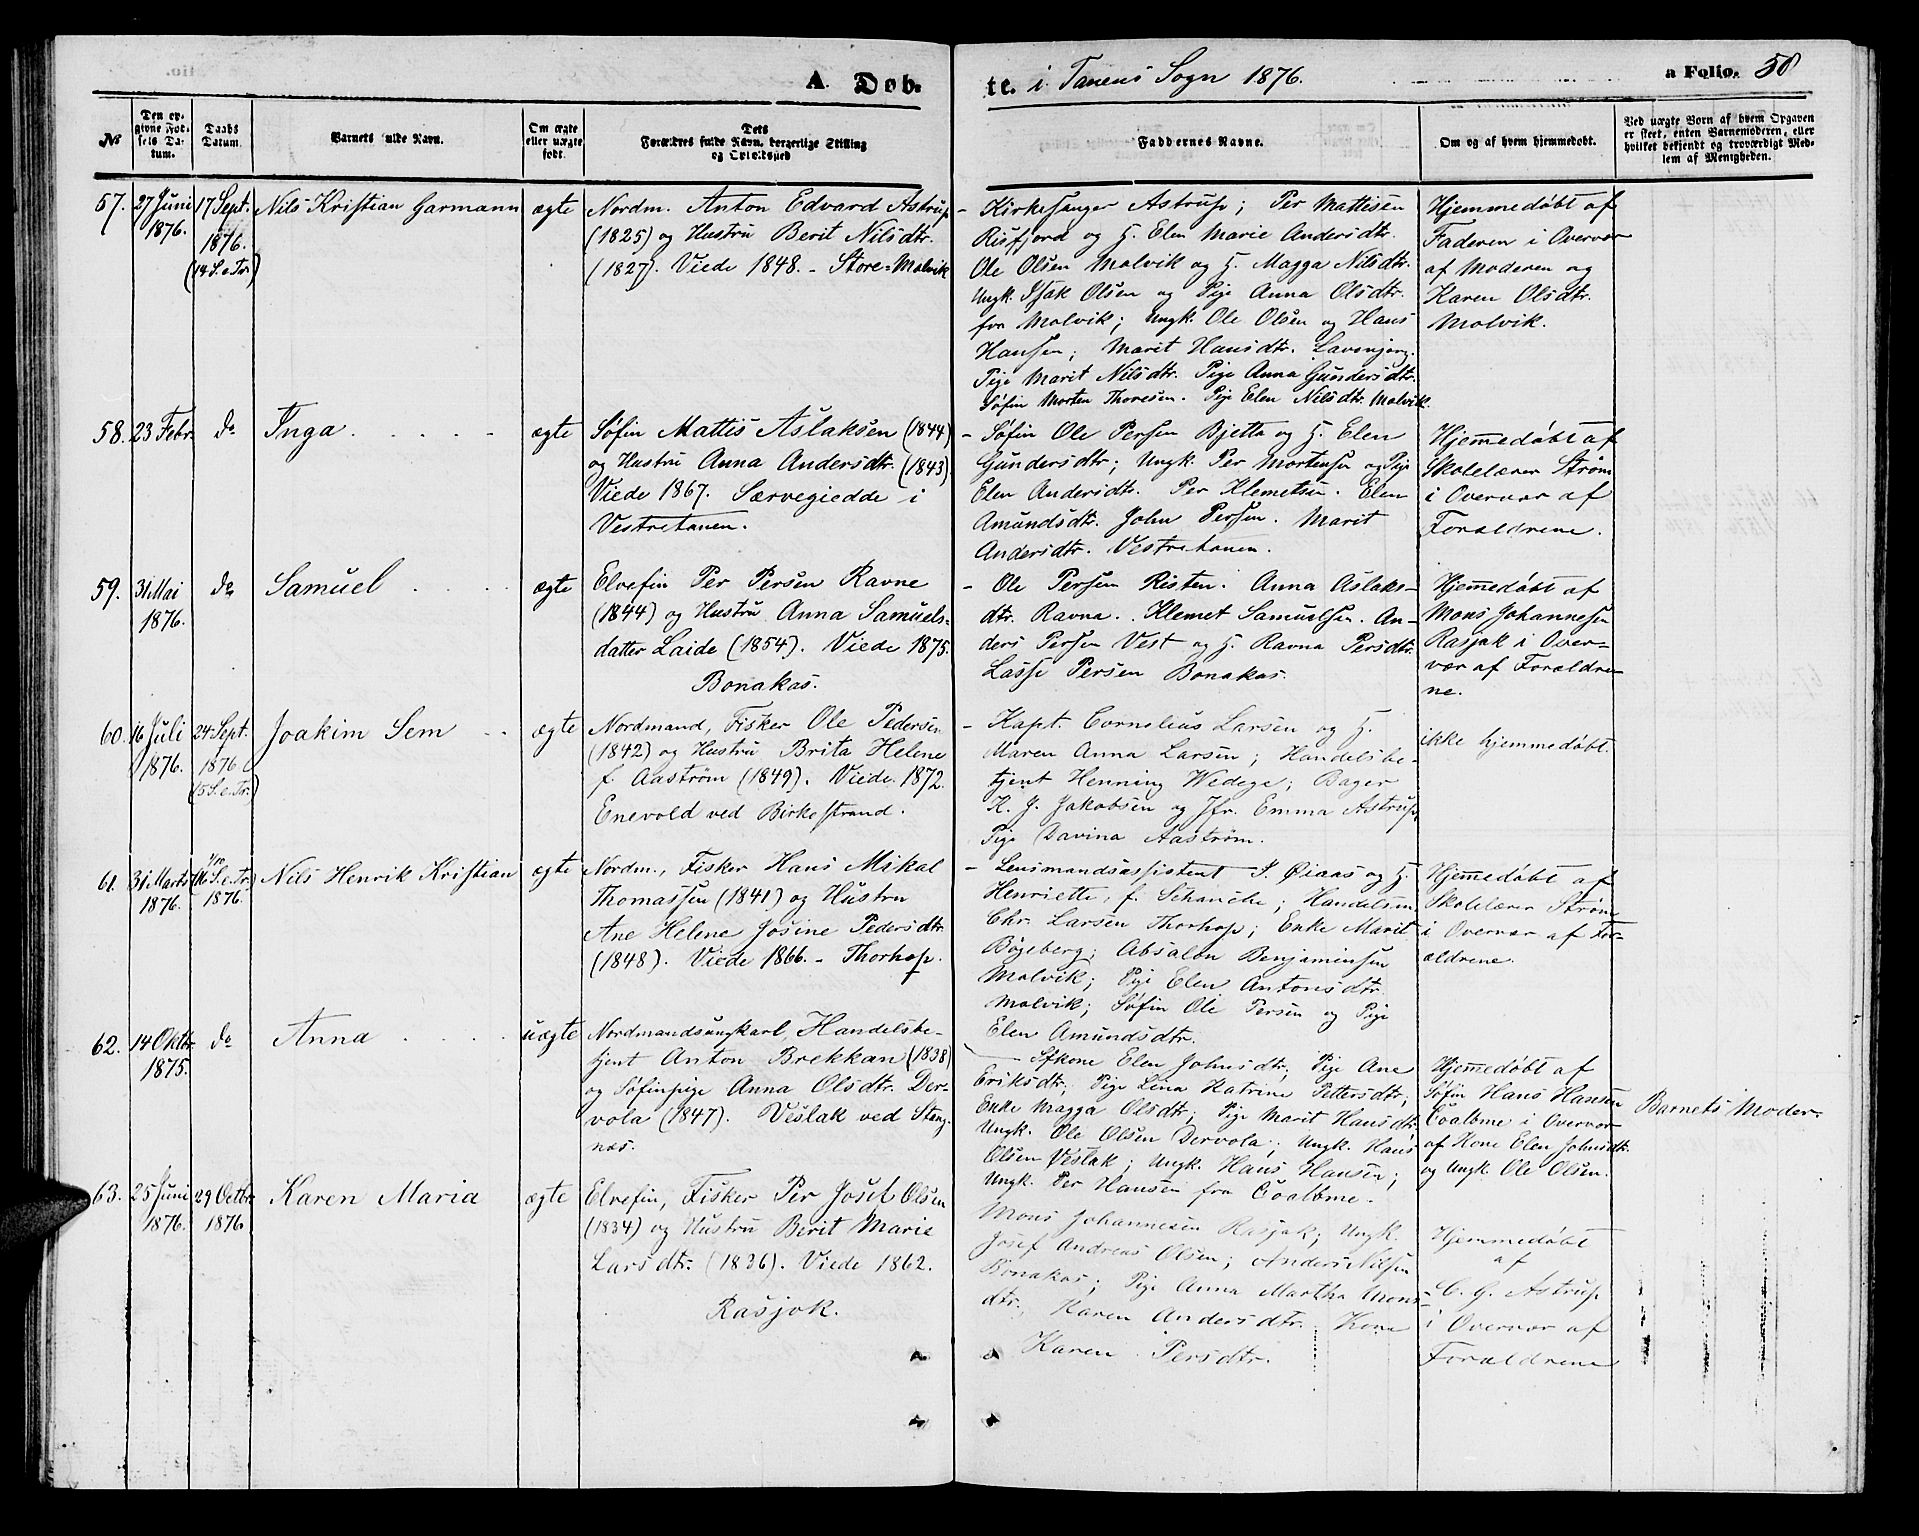 A. Døb.
te. i Tanens Sogn 1876.
a Folio. 58
No
Den opgivne Fødsels Datum.
Daabs Datum.
Barnets fulde Navn.
Om ægte eller uægte født.
Dets Forældres fulde Navn, borgerlige Stilling og Opholdssted
Faddernes Navne.
Om og af hvem hjemmedøbt.
Ved uægte Børn af hvem Opgaven er skeet, enten Barnemoderen, eller hvilket bekjendt og troværdigt Medlem af Menigheden.
57.
27 Juni
1876.
17 Sept.
1876.
(14 S. e. Tr.)
Nils Kristian Garmann
ægte
Nordm. Anton Edvard Astrup
(1825) og Hustru Berit Nilsdtr.
(1827). Viede 1848. - Store-Molvik
- Kirkesanger Astrup; Per Mattisen
Risfjord og H. Elen Marie Andersdtr.
Ole Olsen Molvik og H. Magga Nilsdtr.
Ungk. Isak Olsen og Pige Anna Olsdtr.
fra Molvik; Ungk. Ole Olsen og Hans
Hansen; Marit Hansdtr. Lavonjorg.
Pige Marit Nilsdtr. Pige Anna Gundersdtr.
Søfin Morten Thoresen. Pige Elen Nilsdtr. Molvik.
Hjemmedøbt af
Faderen i Overvær
af Moderen og
Karen Olsdtr.
Molvik.
58.
23 Febr.
do
Inga
ægte
Søfin Mattis Aslaksen (1844)
og Hustru Anna Andersdtr. (1843)
Viede 1867. Særvegiedde i
Vestretanen.
- Søfin Ole Persen Bjetta og H. Elen
Gundersdtr; Ungk. Per Mortensen og Pige
Elen Andersdtr. Per Klemetsen. Elen
Amundsdtr. John Persen. Marit
Andersdtr. Vestretanen.
Hjemmedøbt af
Skolelærer Strøm
i Overvær af
Forældrene.
59.
31 Mai
1876.
do
Samuel
ægte
Elvefin Per Persen Ravne
(1844) og Hustru Anna Samuels-
datter Laide (1854). Viede 1875.
Bonakas.
- Ole Persen Risten. Anna Aslaks-
dtr. Ravna. Klemet Samuelsen. An-
ders Persen Vest og H. Ravna Persdtr.
Lasse Persen Bonakas.
Hjemmedøbt af
Mons Johannesen
Rasjok i Over-
vær af Forældre-
ne.
60.
16 Juli
1876.
24 Sept.
1876
(15 S. e. Tr.)
Joakim Sem
ægte
Nordmand, Fisker Ole Pedersen
(1842) og Hustru Brita Helene
f. Aaström (1849). Viede 1872.
Enevold ved Birkestrand.
- Kapt. Cornelius Larsen og H.
Maren Anna Larsen; Handelsbe-
tjent Henning Wedege; Bager
K. J. Jakobsen og Jfr. Emma Astrup,
Pige Davina Aaström.
ikke hjemmedøbt.
61.
31 Marts
1876.
(16 S. e. Tr.)
1876.
Nils Henrik Kristian
ægte
Nordm., Fisker Hans Mikal
Thomassen (1841) og Hustru
Ane Helene Josine Pedersdtr.
(1848). Viede 1866. - Thorhop.
- Lensmandsassistent I. Øiaas og H.
Henriette, f. Schanche; Handelsm.
Chr. Larsen Thorhop; Enke Marit
Bøgeberg; Absalon Benjaminsen
Molvik; Pige Elen Antonsdtr.
Molvik; Søfin Ole Persen og Pige
Elen Amundsdtr.
Hjemmedøbt af
Skolelærer Strøm
i Overvær af For-
ældrene.
62.
14 Oktbr.
1875.
do
Anna
uægte
Nordmandsungkarl, Handelsbe-
tjent Anton Brekkan (1838)
og Søfinpige Anna Olsdtr. Der-
vola (1847). Veslak ved Stang-
næs.
Sfkone Elen Johnsdtr; Pige Ane
Eriksdtr; Pige Lina Katrine Pettersdtr;
Enke Magga Olsdtr; Pige Marit Hansdtr.
Ungk. Ole Olsen Dervola; Ungk. Hans
Olsen Veslak; Ungk. Hans Hansen;
Ungk. Per Hansen fra Coalbme.
Hjemmedøbt af
Søfin Hans Hansen
Coalbme i Overvær
af Kone Elen Johnsdtr.
og Ungk. Ole Olsen.
Barnets Moder.
63.
25 Juni
1876.
29 Octbr.
1876.
Karen Maria
ægte
Elvefin, Fisker Per Josef Olsen
(1834) og Hustru Berit Marie
Larsdtr. (1836). Viede 1862.
Rasjok.
Mons Johannesen Rasjok; Ungk.
Josef Andreas Olsen; Anders Nilsen
Bonakas; Pige Anna Martha Mons-
dtr. Karen Andersdtr. Kone
Karen Persdtr.
Hjemmedøbt
af
C. G. Astrup
i Overvær af
Forældrene